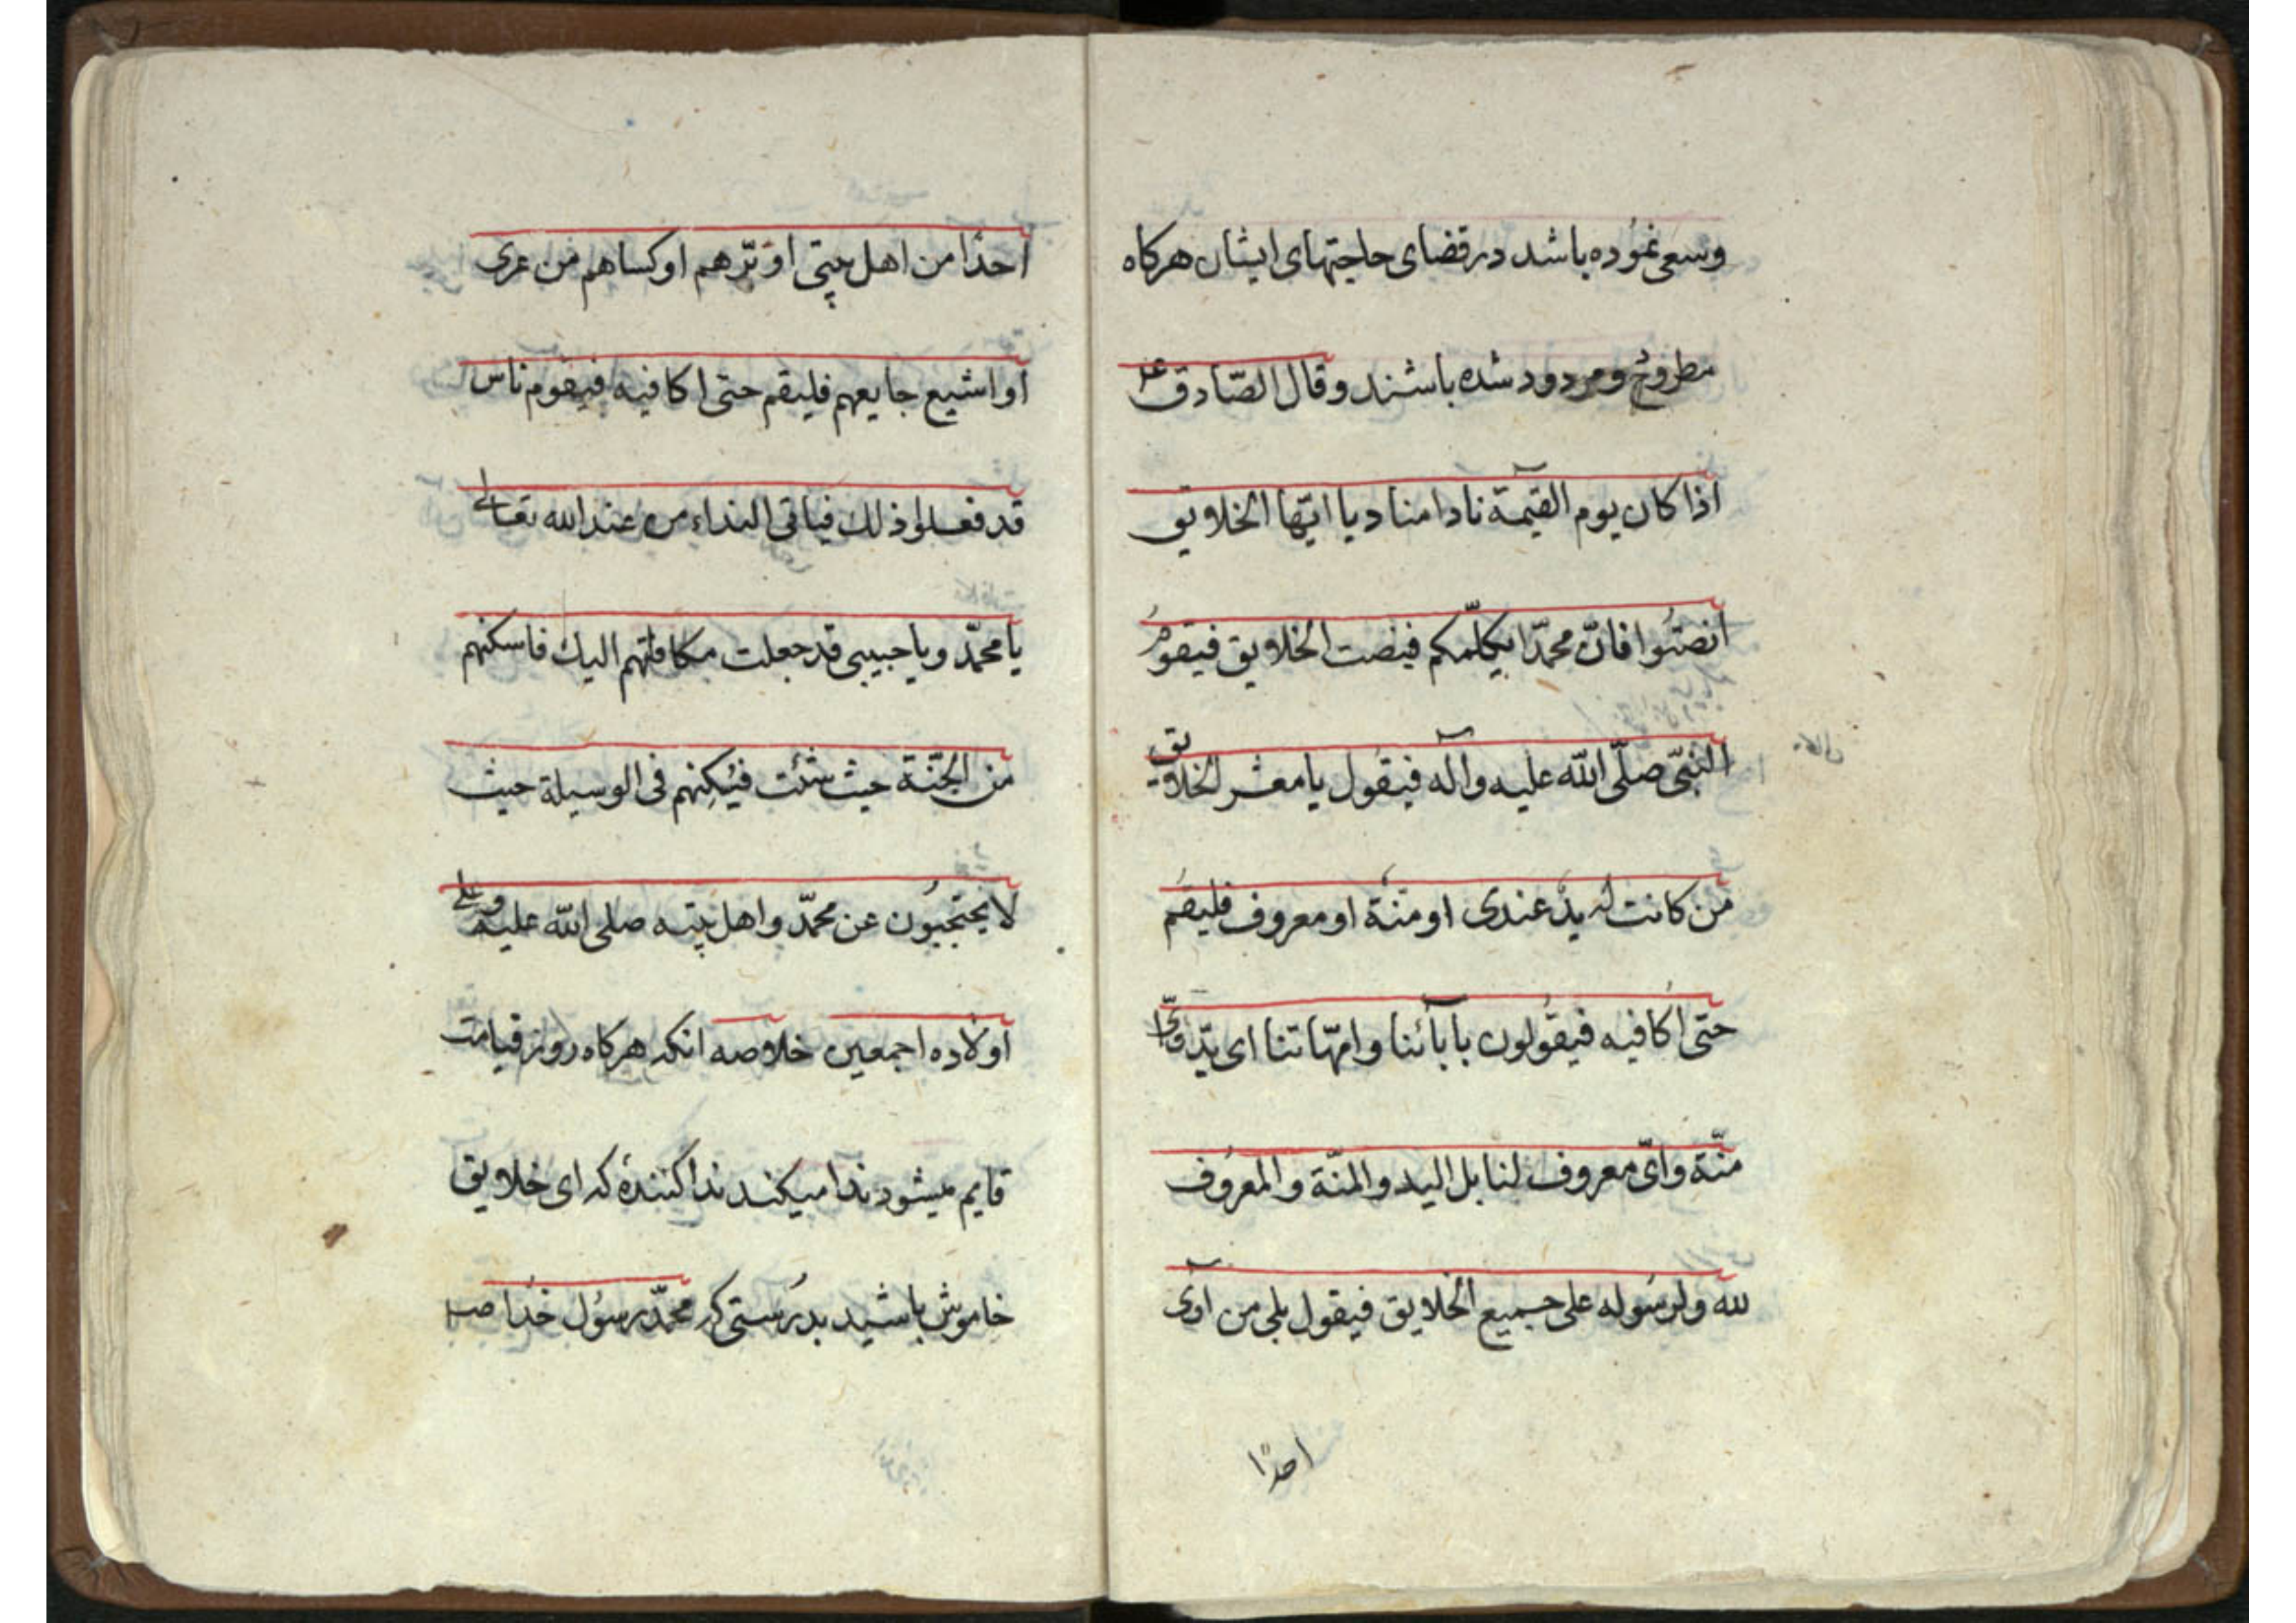 وسعی نموده باشد در قضای حاجتهای ایشان هرکاه
مطروح و مردود شده باشند و قال الصّادق ع
اذا کان یوم القیمة نادا مناد یا ایّها الخلایق
انصتوا فانّ محمّدا یکلّمکم فینصت الخلایق فیقوم
النبیّ صلّی اللّه علیه وآله فیقول یا معشر الخلایق
من کانت له یدٌ عندی او منّة او معروف فلیقم
حتی اُکافیه فیقولون بابآئنا وامّهاتنا ای یدٍ وایّ
منّة وایّ معروف لنا بل الید والمنّة والمعروف
للّه ولرسوله علی جمیع الخلایق فیقول بلی من آوی
احدًا
احدًا من اهل بیتی او برّهم او کساهم من عری
او اشبع جایعهم فلیقم حتی اکافیه فیقوم ناس
قد فعلوا ذلك فیاتی النداء من عند الله تعالی
یا محمّد ویا حبیبی قد جعلت مکافاتهم الیك فاسکنهم
من الجنّة حیث شئت فیُسکنهم فی الوسیلة حیث
لا یحتجبون عن محمّد واهل بیته صلی اللّه علیه وعلی
اولاده اجمعین خلاصه انکه هرکاه روز قیامت
قایم میشود ندا میکند ندا کنندهٔ که ای خلایق
خاموش باشید بدرستی که محمّد رسول خدا ص